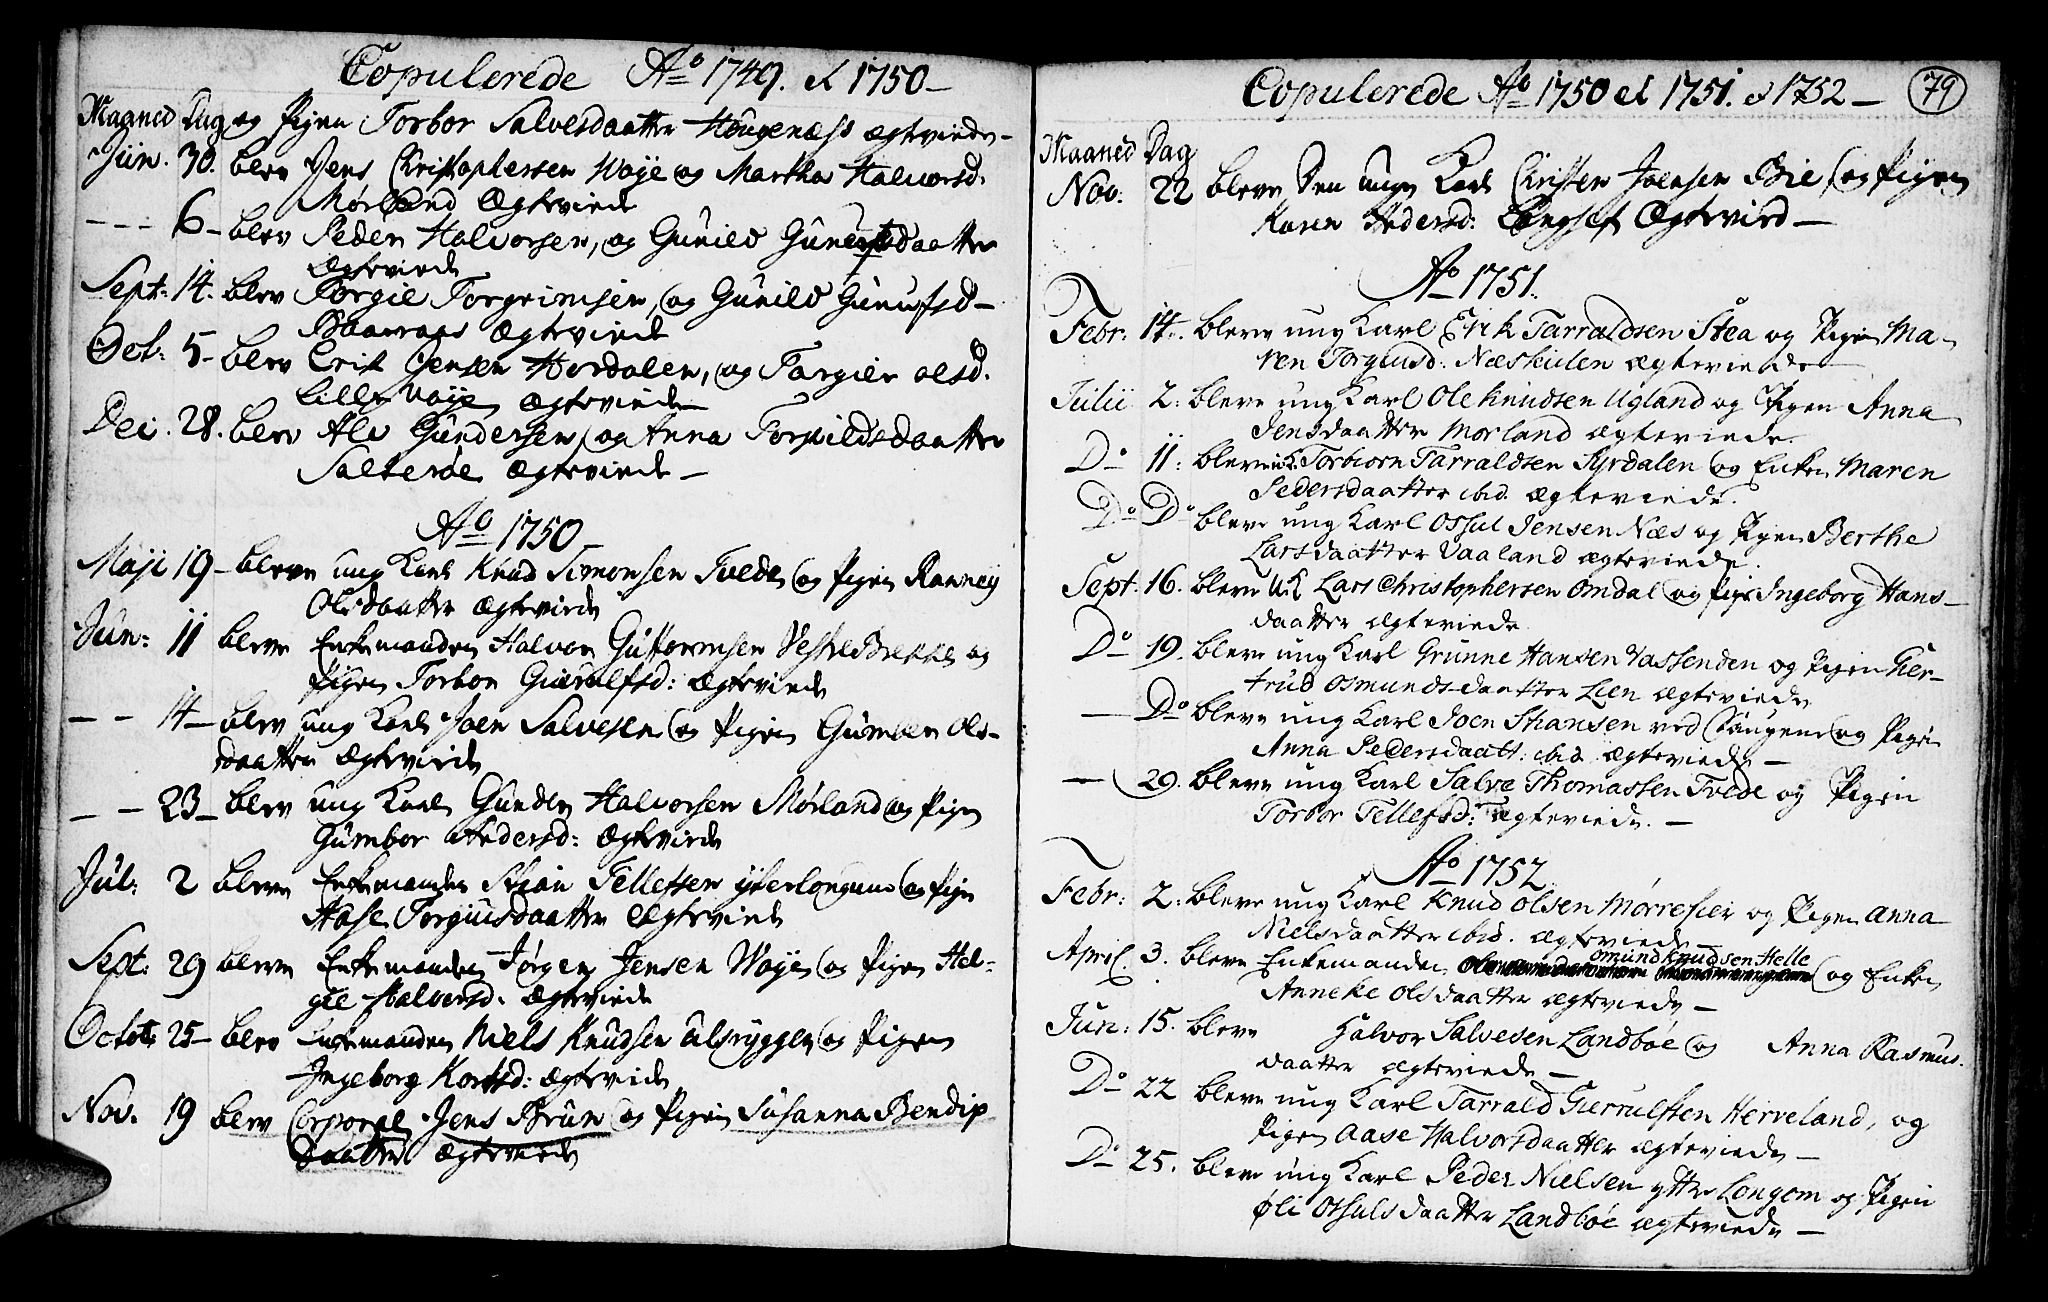 Copulerede Aº 1749. et 1750-
Maaned Dag og Pigen Torbor Salvesdaatter Hougenæss ægteviede-
Jün. 30. blev Jens Christophersen Woje og Martha Halvorsd:
Mørland Ægteviede
--- 6- blev Peder Halvorsen, og Gunild daatter
Ægteviede
Sept: 14. blev Torgrimsen, og Gunild Gunufsd-
Ægteviede
Oct: 5- blev Jensen Hordalen, og Targier olsd.
Lille Woje Ægteviede
Dec. 28. blev Ale Gundersen, og Anna Torkildsdaatter
Salterøe Ægteviede-
Aº 1750
Maji 19- bleve ung Karl Knud Simonsen Tvede, og Pigen Ranney
Olsdaatter Ægteviede
Jun: 11 bleve Enkemanden Halvor Guttormsen Vestre Brekke og
Pigen Torbor Gierulfsd: Ægteviede
-- 14- blev ung Karl Joen Salvesen og Pigen Gumbor Ols-
daatter Ægteviede
-- 23- blev ung Karl Gunder Halvorsen Mørland og Pigen
Gumbor Andersd: Ægteviede
Jül: 2 bleve Enkemanden Stian Tellefsen ytterlongum og Pigen
Aase Torgiusdaatter Ægteviede
Sept: 29 bleve Enkemanden Jørgen Jensen Woje og Pigen Hel-
gie Halvorsd: Ægteviede
Octob 25- blev Enkemanden Niels Knudsen ulsryggen og Pigen
Ingeborg Kortsd: ægteviede
Nov. 19 blev Corporal Jens Brun og Pigen Susanna Bendix
Daatter Ægteviede
Copulerede Aº 1750 et 1751. et 1752-
79
Maaned Dag
Nov: 22 bleve Den unge Karl Christen Joensen Bie og Pigen
Karen Andersd: Langset Ægtevied-
Aº 1751.
Febr: 14. bleve ung Karl Erik Tarraldsen Stea og Pigen Ma-
ren Torgiusd: Næskilen ægteviede
Julii 2: bleve ung Karl Ole Knudsen Ugland og Pigen Anna
Jensdaatter Morland ægteviede
Dº 11: bleve u:k: Torbiorn Tarraldsen Syrdalen og Enken Maren
Pedersdaatter ibid. ægteviede.
Dº Dº bleve ung Karl Ossul Jensen Næs og Pigen Berthe
Larsdaatter Vaaland ægteviede.
Sept. 16. bleve u:k Lars Christophersen Omdal og Pige Ingeborg Hans-
daatter ægteviede
Dº 19. bleve ung Karl Grunne Hansen Vassenden og Pigen Ger-
trud Osmunds-daatter Lien ægteviede
- Dº bleve ung Karl Joen Shansen ved Haugene og Pigen
Anna Pedersdaatt: ibid ægteviede-
- 29. bleve ung Karl Salve Thomassen Tvede og Pigen
Torbor Tellefsd: Ægteviede.-
Aº 1752
Febr: 2: bleve ung Karl Knud Olsen Mørrefier og Pigen Anna
Nielsdaatter ibid. ægteviede-
omund Knudsen Helle
April. 3. bleve Enkemanden og Enken
Anneke Olsdaatter ægteviede-
Jun: 15. bleve Halvor Salvesen Landbøe og Anna Rasmus.
daatter ægteviede-
Dº 22 bleve ung Karl Tarrald Gierrulfsen Herveland, og
Pigen Aase Halvorsdaatter ægteviede-
Dº 25. bleve ung Karl Peder Nielsen ytter Longom og Pigen
Øli Ossulsdaatter Landbøe ægteviede-